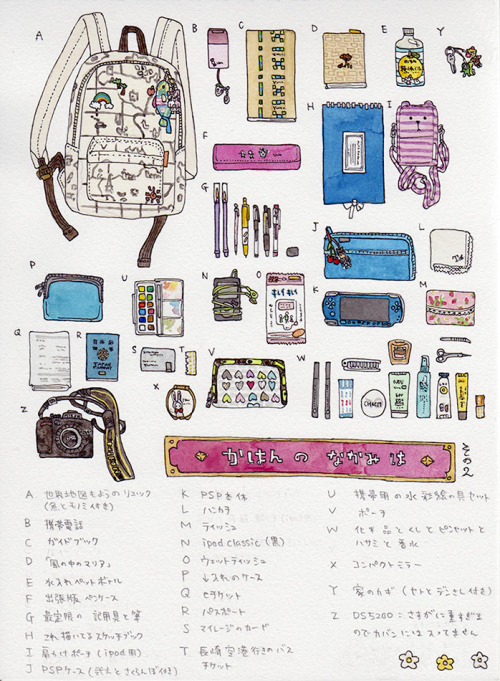 A
B
C
D
E
Y
F
H
I
G
J
L
K
M
P
U
N
O
Q
R
JAPAN
S
T
V
W
X
Z
かばんの なかみは
その2
A 世界地図もようのリュック
(魚とモノミ付き)
B 携帯電話
C ガイドブック
D 「風の中のマリア」
E 水入れペットボトル
F 出張版 ペンケース
G 最望限の 記用具と筆
H これ描いてるスケッチブック
I 肩かけポーチ (ipod用)
J PSPケース (さくらんぼ付き)
K PSP本体
L ハンカチ
M ティッシュ
N ipod classic (黒)
O ウェットティッシュ
P ↓入れのケース
Q eチケット
R パスポート
S マイレージのカード
T 長崎空港行きのバス
チケット
U 携帯用の水彩絵の具セット
V ポーチ
W 化粧品とくしとピンセットと
ハサミと香水
X コンパクトミラー
Y 家のカギ (セトとデジさし付き)
Z D5200:さすがに重すぎま
のでカバンにはスってません